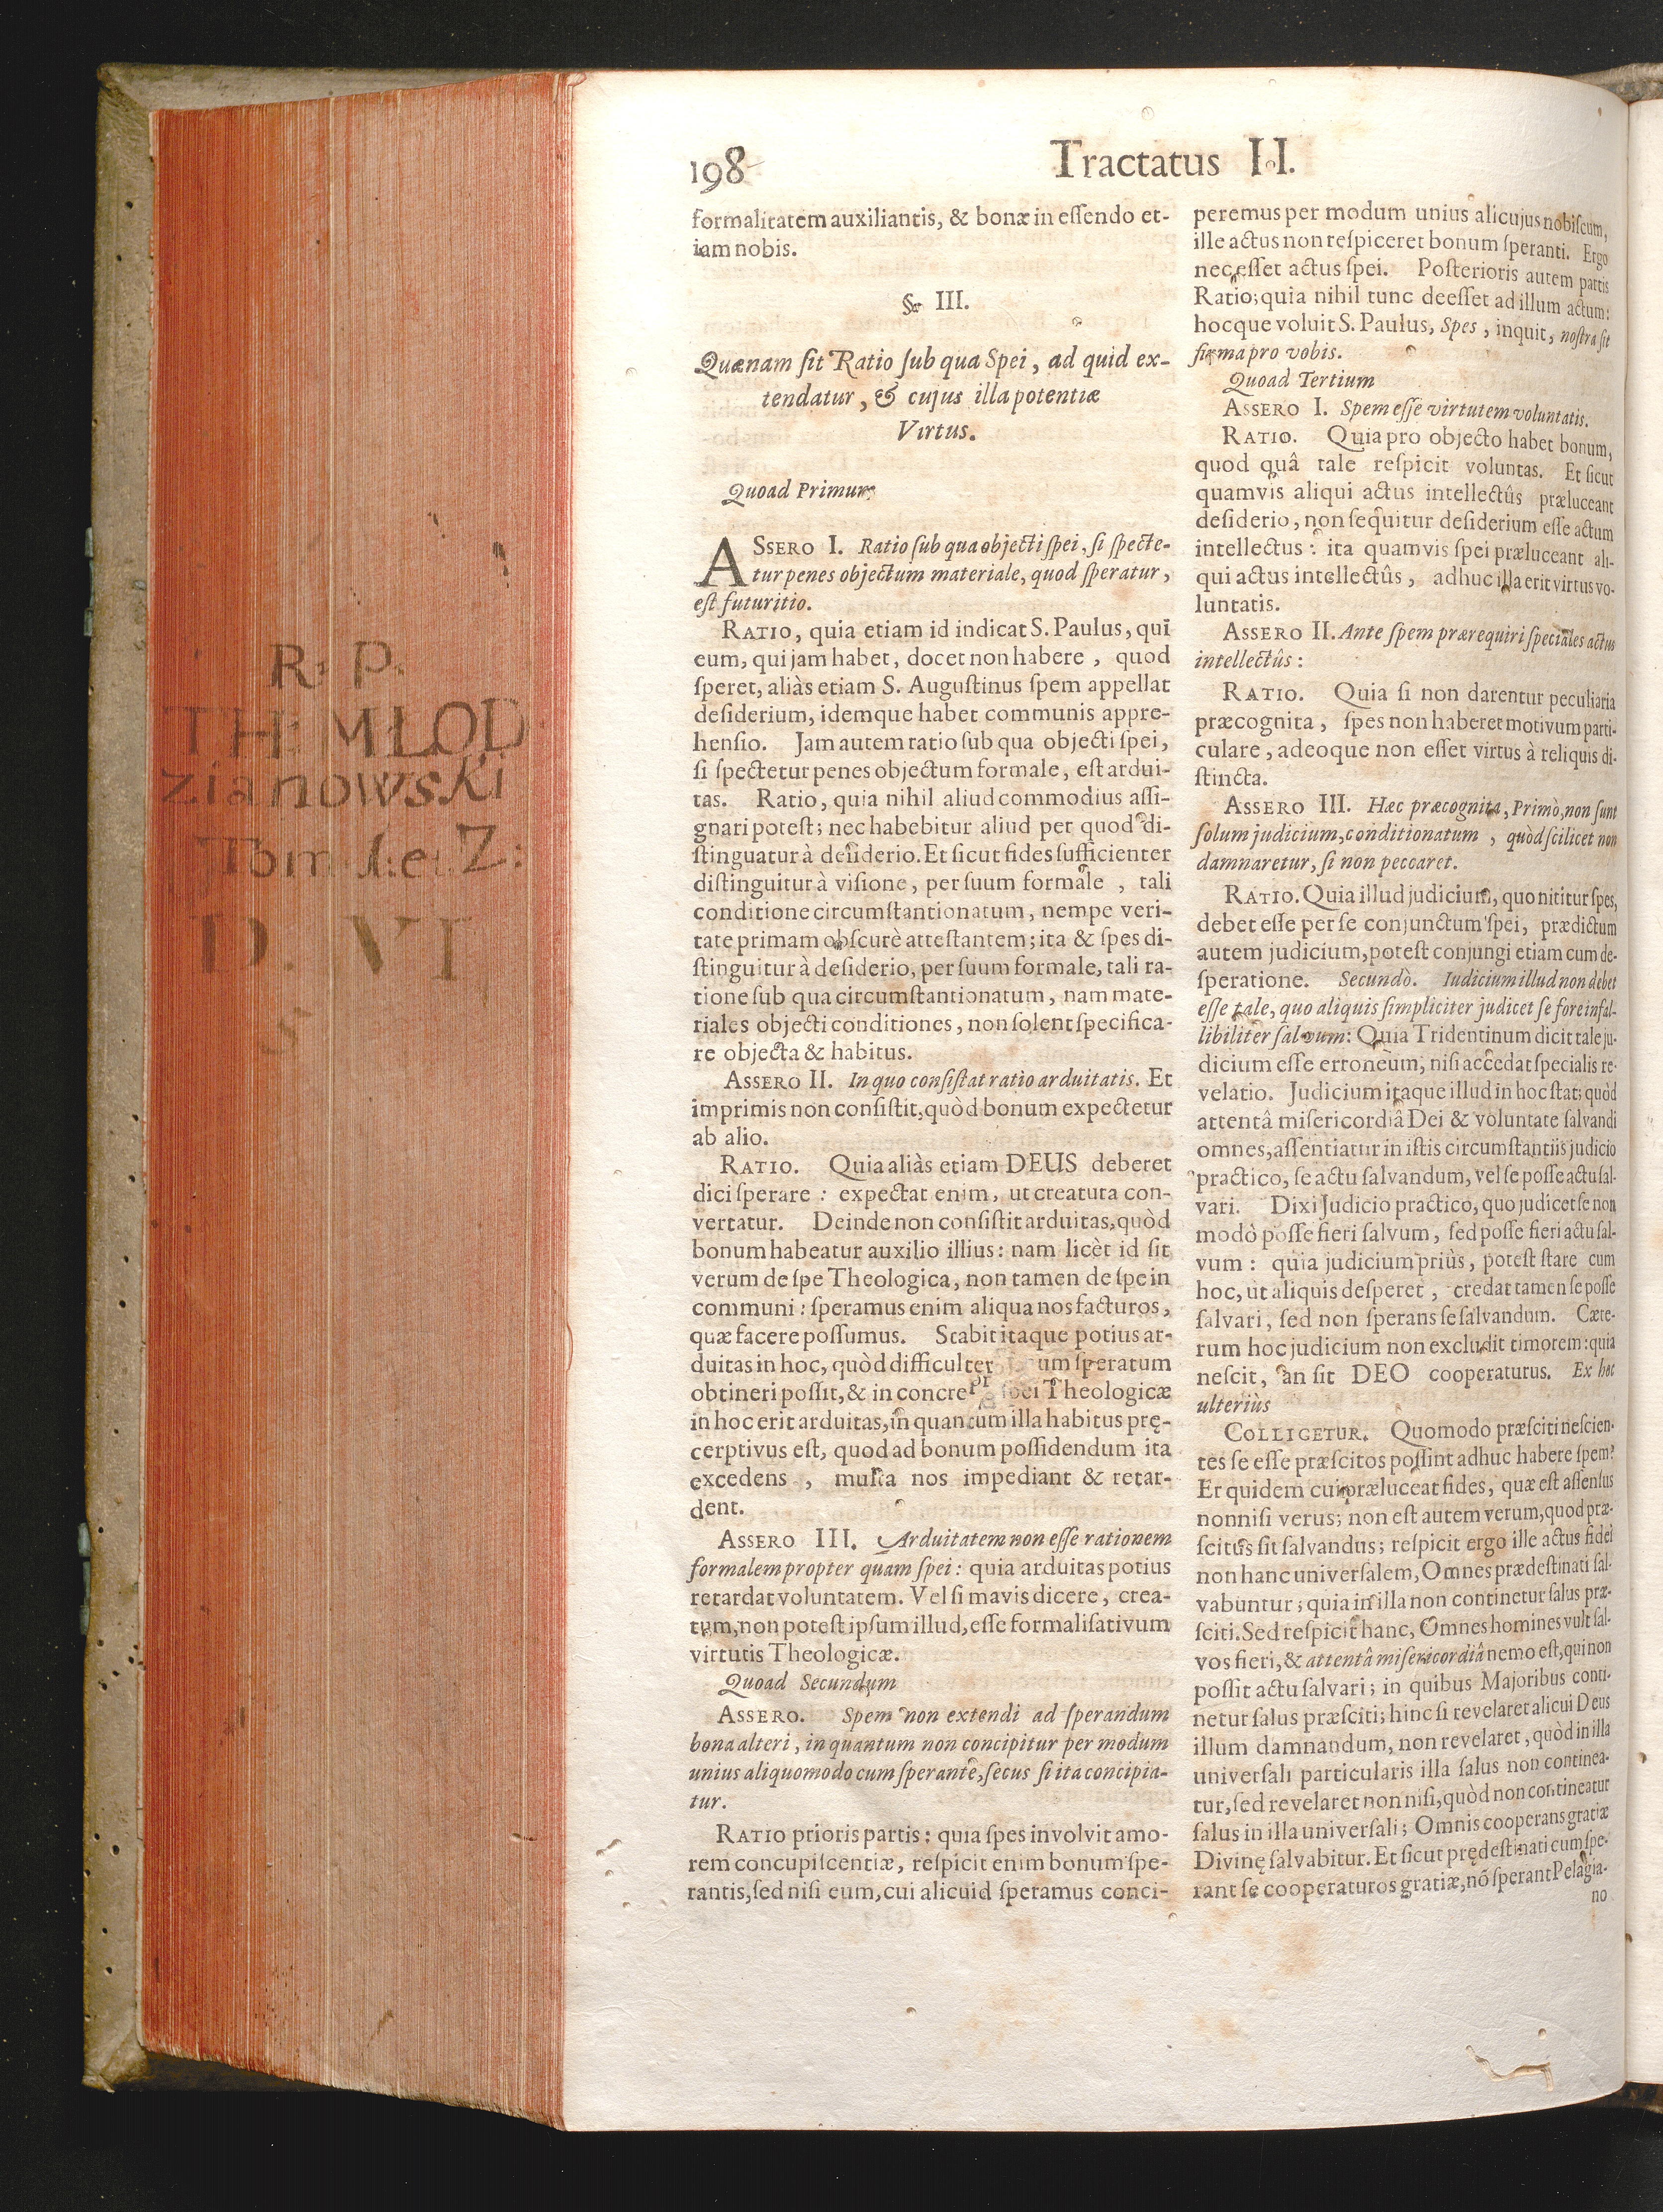 R: P.
TH: MŁOD
zianowski
Tom 1: et Z:
D. VI
S
198
Tractatus II.
formalitatem auxiliantis, & bonæ in eſſendo et-
iam nobis.
§. III.
Quænam ſit Ratio ſub qua Spei, ad quid ex-
tendatur, & cujus illa potentiæ
Virtus.
Quoad Primum
ASSERO I. Ratio ſub qua objecti ſpei, ſi ſpecte-
tur penes objectum materiale, quod ſperatur,
eſt futuritio.
RATIO, quia etiam id indicat S. Paulus, qui
eum, qui jam habet, docet non habere, quod
ſperet, aliàs etiam S. Auguſtinus ſpem appellat
deſiderium, idemque habet communis appre-
henſio. Jam autem ratio ſub qua objecti ſpei,
ſi ſpectetur penes objectum formale, eſt ardui-
tas. Ratio, quia nihil aliud commodius aſſi-
gnari poteſt; nec habebitur aliud per quod di-
ſtinguatur à deſiderio. Et ſicut fides ſufficienter
diſtinguitur à viſione, per ſuum formale, tali
conditione circumſtantionatum, nempe veri-
tate primam obſcurè atteſtantem; ita & ſpes di-
ſtinguitur à deſiderio, per ſuum formale, tali ra-
tione ſub qua circumſtantionatum, nam mate-
riales objecti conditiones, non ſolent ſpecifica-
re objecta & habitus.
ASSERO II. In quo conſiſtat ratio arduitatis. Et
imprimis non conſiſtit, quòd bonum expectetur
ab alio.
RATIO. Quia aliàs etiam DEUS deberet
dici ſperare: expectat enim, ut creatura con-
vertatur. Deinde non conſiſtit arduitas, quòd
bonum habeatur auxilio illius: nam licèt id ſit
verum de ſpe Theologica, non tamen de ſpe in
communi: ſperamus enim aliqua nos facturos,
quæ facere poſſumus. Stabit itaque potius ar-
duitas in hoc, quòd difficulter um ſperatum
obtineri poſſit, & in concre ſpei Theologicæ
in hoc erit arduitas, in quantum illa habitus prę-
cerptivus eſt, quod ad bonum poſſidendum ita
excedens, multa nos impediant & retar-
dent.
ASSERO III. Arduitatem non eſſe rationem
formalem propter quam ſpei: quia arduitas potius
retardat voluntatem. Vel ſi mavis dicere, crea-
tum, non poteſt ipſum illud, eſſe formaliſativum
virtutis Theologicæ.
Quoad Secundum
ASSERO. Spem non extendi ad ſperandum
bona alteri, in quantum non concipitur per modum
unius aliquomodo cum ſperante, ſecus ſi ita concipia-
tur.
RATIO prioris partis: quia ſpes involvit amo-
rem concupiſcentiæ, reſpicit enim bonum ſpe-
rantis, ſed niſi eum, cui alicuid ſperamus conci-
peremus per modum unius alicujus nobiſcum,
ille actus non reſpiceret bonum ſperanti. Ergo
nec eſſet actus ſpei. Poſterioris autem partis
Ratio; quia nihil tunc deeſſet ad illum actum:
hocque voluit S. Paulus, Spes, inquit, noſtra ſit
firma pro vobis.
Quoad Tertium
ASSERO I. Spem eſſe virtutem voluntatis.
RATIO. Quia pro objecto habet bonum,
quod quâ tale reſpicit voluntas. Et ſicut
quamvis aliqui actus intellectûs præluceant
deſiderio, non ſequitur deſiderium eſſe actum
intellectus: ita quamvis ſpei præluceant ali-
qui actus intellectûs, adhuc illa erit virtus vo-
luntatis.
ASSERO II. Ante ſpem prærequiri ſpeciales actus
intellectûs:
RATIO. Quia ſi non darentur peculiaria
præcognita, ſpes non haberet motivum parti-
culare, adeoque non eſſet virtus à reliquis di-
ſtincta.
ASSERO III. Hæc præcognita, Primò, non ſunt
ſolum judicium, conditionatum, quòd ſcilicet non
damnaretur, ſi non peccaret.
RATIO. Quia illud judicium, quo nititur ſpes,
debet eſſe per ſe conjunctum ſpei, prædictum
autem judicium, poteſt conjungi etiam cum de-
ſperatione. Secundò. Iudicium illud non debet
eſſe tale, quo aliquis ſimpliciter judicet ſe fore infal-
libiliter ſalvum: Quia Tridentinum dicit tale ju-
dicium eſſe erroneum, niſi accedat ſpecialis re-
velatio. Judicium itaque illud in hoc ſtat; quòd
attentâ miſericordiâ Dei & voluntate ſalvandi
omnes, aſſentiatur in iſtis circumſtantiis judicio
practico, ſe actu ſalvandum, vel ſe poſſe actu ſal-
vari. Dixi Judicio practico, quo judicet ſe non
modò poſſe fieri ſalvum, ſed poſſe fieri actu ſal-
vum: quia judicium priùs, poteſt ſtare cum
hoc, ut aliquis deſperet, credat tamen ſe poſſe
ſalvari, ſed non ſperans ſe ſalvandum. Cæte-
rum hoc judicium non excludit timorem: quia
neſcit, an ſit DEO cooperaturus. Ex hoc
ulteriùs
COLLIGETUR. Quomodo præſciti neſcien-
tes ſe eſſe præſcitos poſſint adhuc habere ſpem?
Et quidem cui præluceat fides, quæ eſt aſſenſus
nonniſi verus; non eſt autem verum, quod præ-
ſcitus ſit ſalvandus; reſpicit ergo ille actus fidei
non hanc univerſalem, Omnes prædeſtinati ſal-
vabuntur; quia in illa non continetur ſalus præ-
ſciti. Sed reſpicit hanc, Omnes homines vult ſal-
vos fieri, & attentâ miſericordiâ nemo eſt, qui non
poſſit actu ſalvari; in quibus Majoribus conti-
netur ſalus præſciti; hinc ſi revelaret alicui Deus
illum damnandum, non revelaret, quòd in illa
univerſali particularis illa ſalus non continea-
tur, ſed revelaret non niſi, quòd non contineatur
ſalus in illa univerſali; Omnis cooperans gratiæ
Divinę ſalvabitur. Et ſicut prędeſtinati cum ſpe-
rant ſe cooperaturos gratiæ, nõ ſperant Pelagia-
no